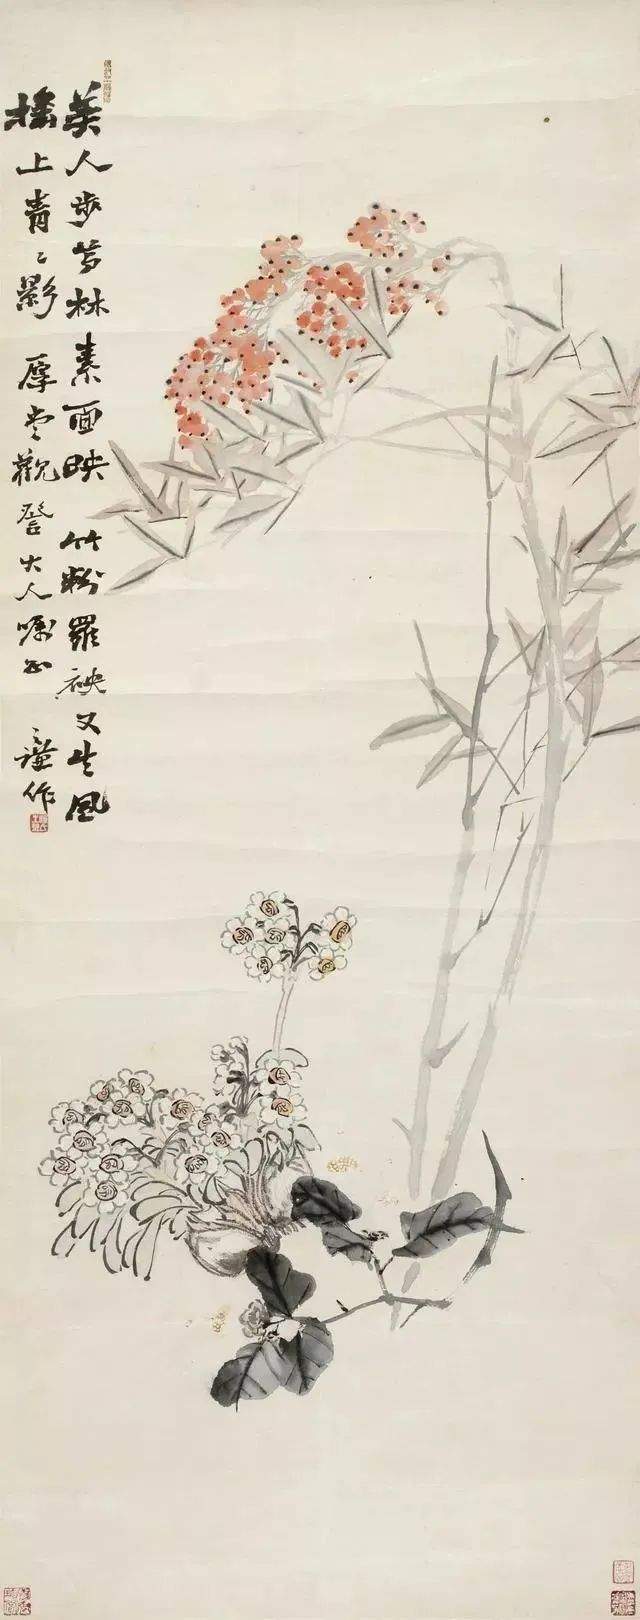 美人步芳林素面映竹粉羅袂又生風
搖上青〻影 厚堂觀詧大人囑正 之謙作